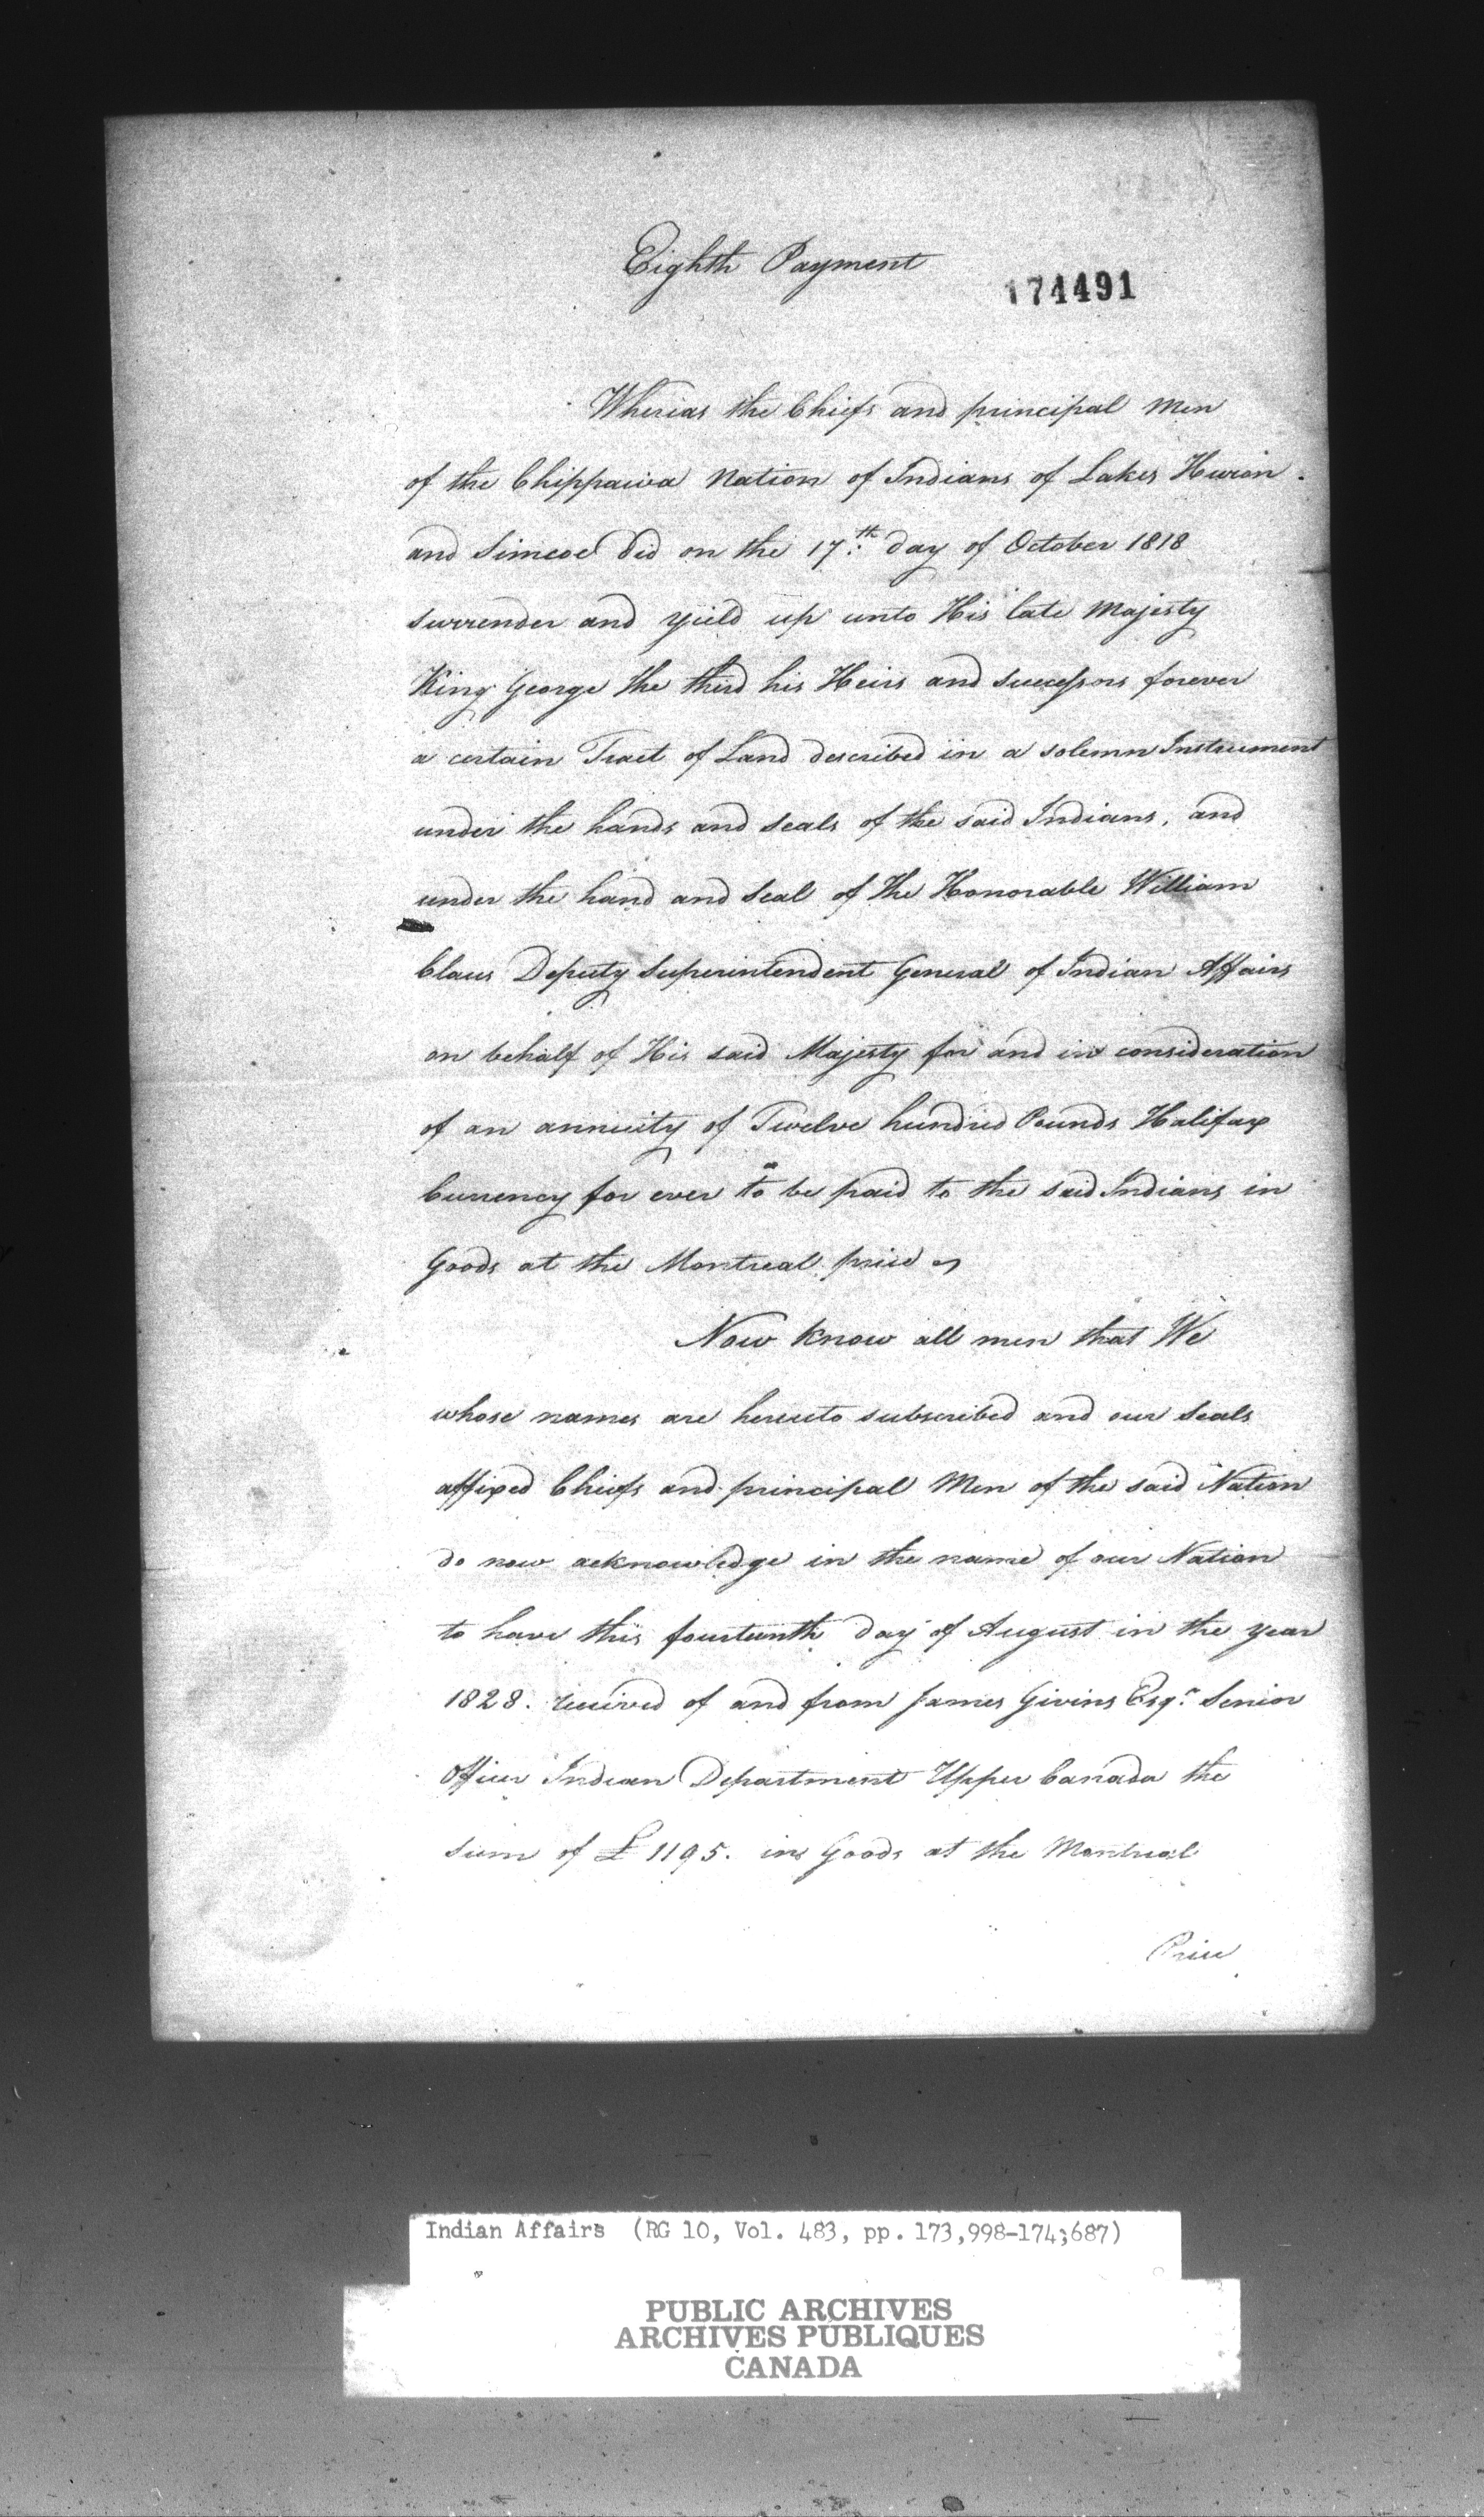 Eighth Payment
174491
Whereas the Chiefs and principal Men
of the Chippawa Nation of Indians of Lakes Huron
and Simcoe did on the 17th day of October 1818
surrender and yield up unto His late Majesty
King George the third his Heirs and Successors forever
a certain Tract of Land described in a solemn Instrument
under the hands and seals of the said Indians, and
under the hand and Seal of The Honorable William
Claus Deputy Superintendent General of Indian Affairs
on behalf of His said Majesty for and in consideration
of an annuity of Twelve hundred Pounds Halifax
Currency for ever to be paid to the said Indians in
Goods at the Montreal price
Now Know all men that We
whose names are hereuto subscribed and our Seals
affixed Chiefs and principal Men of the said Nation
do now acknowledge in the name of our Nation
to have this fourteenth day of August in the year
1828. received of and from James Givins Esqr. Senior
Officer Indian Department Upper Canada the
sum of £ 1195. in Goods at the Montreal
Price
Indian Affairs (RG 10, Vol. 483, pp. 173,998-174;687)
PUBLIC ARCHIVES
ARCHIVES PUBLIQUES
CANADA